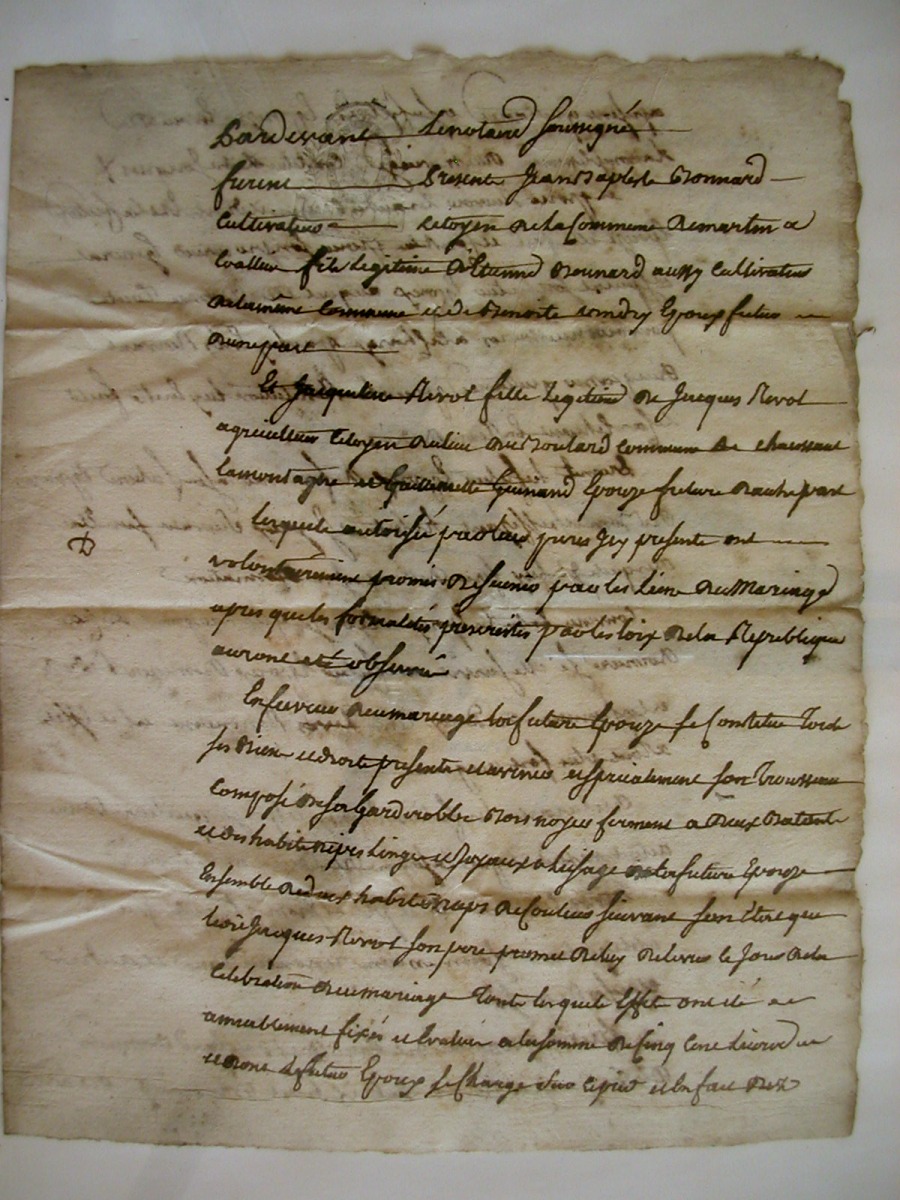 Pardevant le notaire soussigné
furent present Jean Baptiste Bonnard
Cultivateur citoyen de la Commune de martin a
fils legitime d'Etienne Bonnard aussy Cultivateur
de la même Commune et de Benoite Epoux futur
d'une part
Et Jacqueline Rivot fille legitime de Jacques Rivot
agriculteur Citoyen du lieu du Commune de chaussant
lamontagne et Guillemette Guinand Epouze future dautre part
lesquels autorisé par leur peres Icy presents ont
volontairement promis de sunir par les liens du Mariage
apres que les formalités prescrites par les loix de la Republique
auront eté observé
En faveur du mariage la future Epouze se Constitue Tous
ses Biens et droits presents et avenir et specialement son Trousseau
Composé de sa Garderobbe Bois noyer fermant a Deux Batants
et des habits nipes linges et Joyaux a lusage de la future Epouze
Ensemble de deux habits neufs de Couleur suivant son Etre que
ledit Jacques Rivot son pere promet de luy delivrer le Jour de la
Celebration du mariage Tous lesquels Effets ont été
amiablement fixés et Evalués a la somme de Cinq Cent
et dont le futur Epoux se Charge